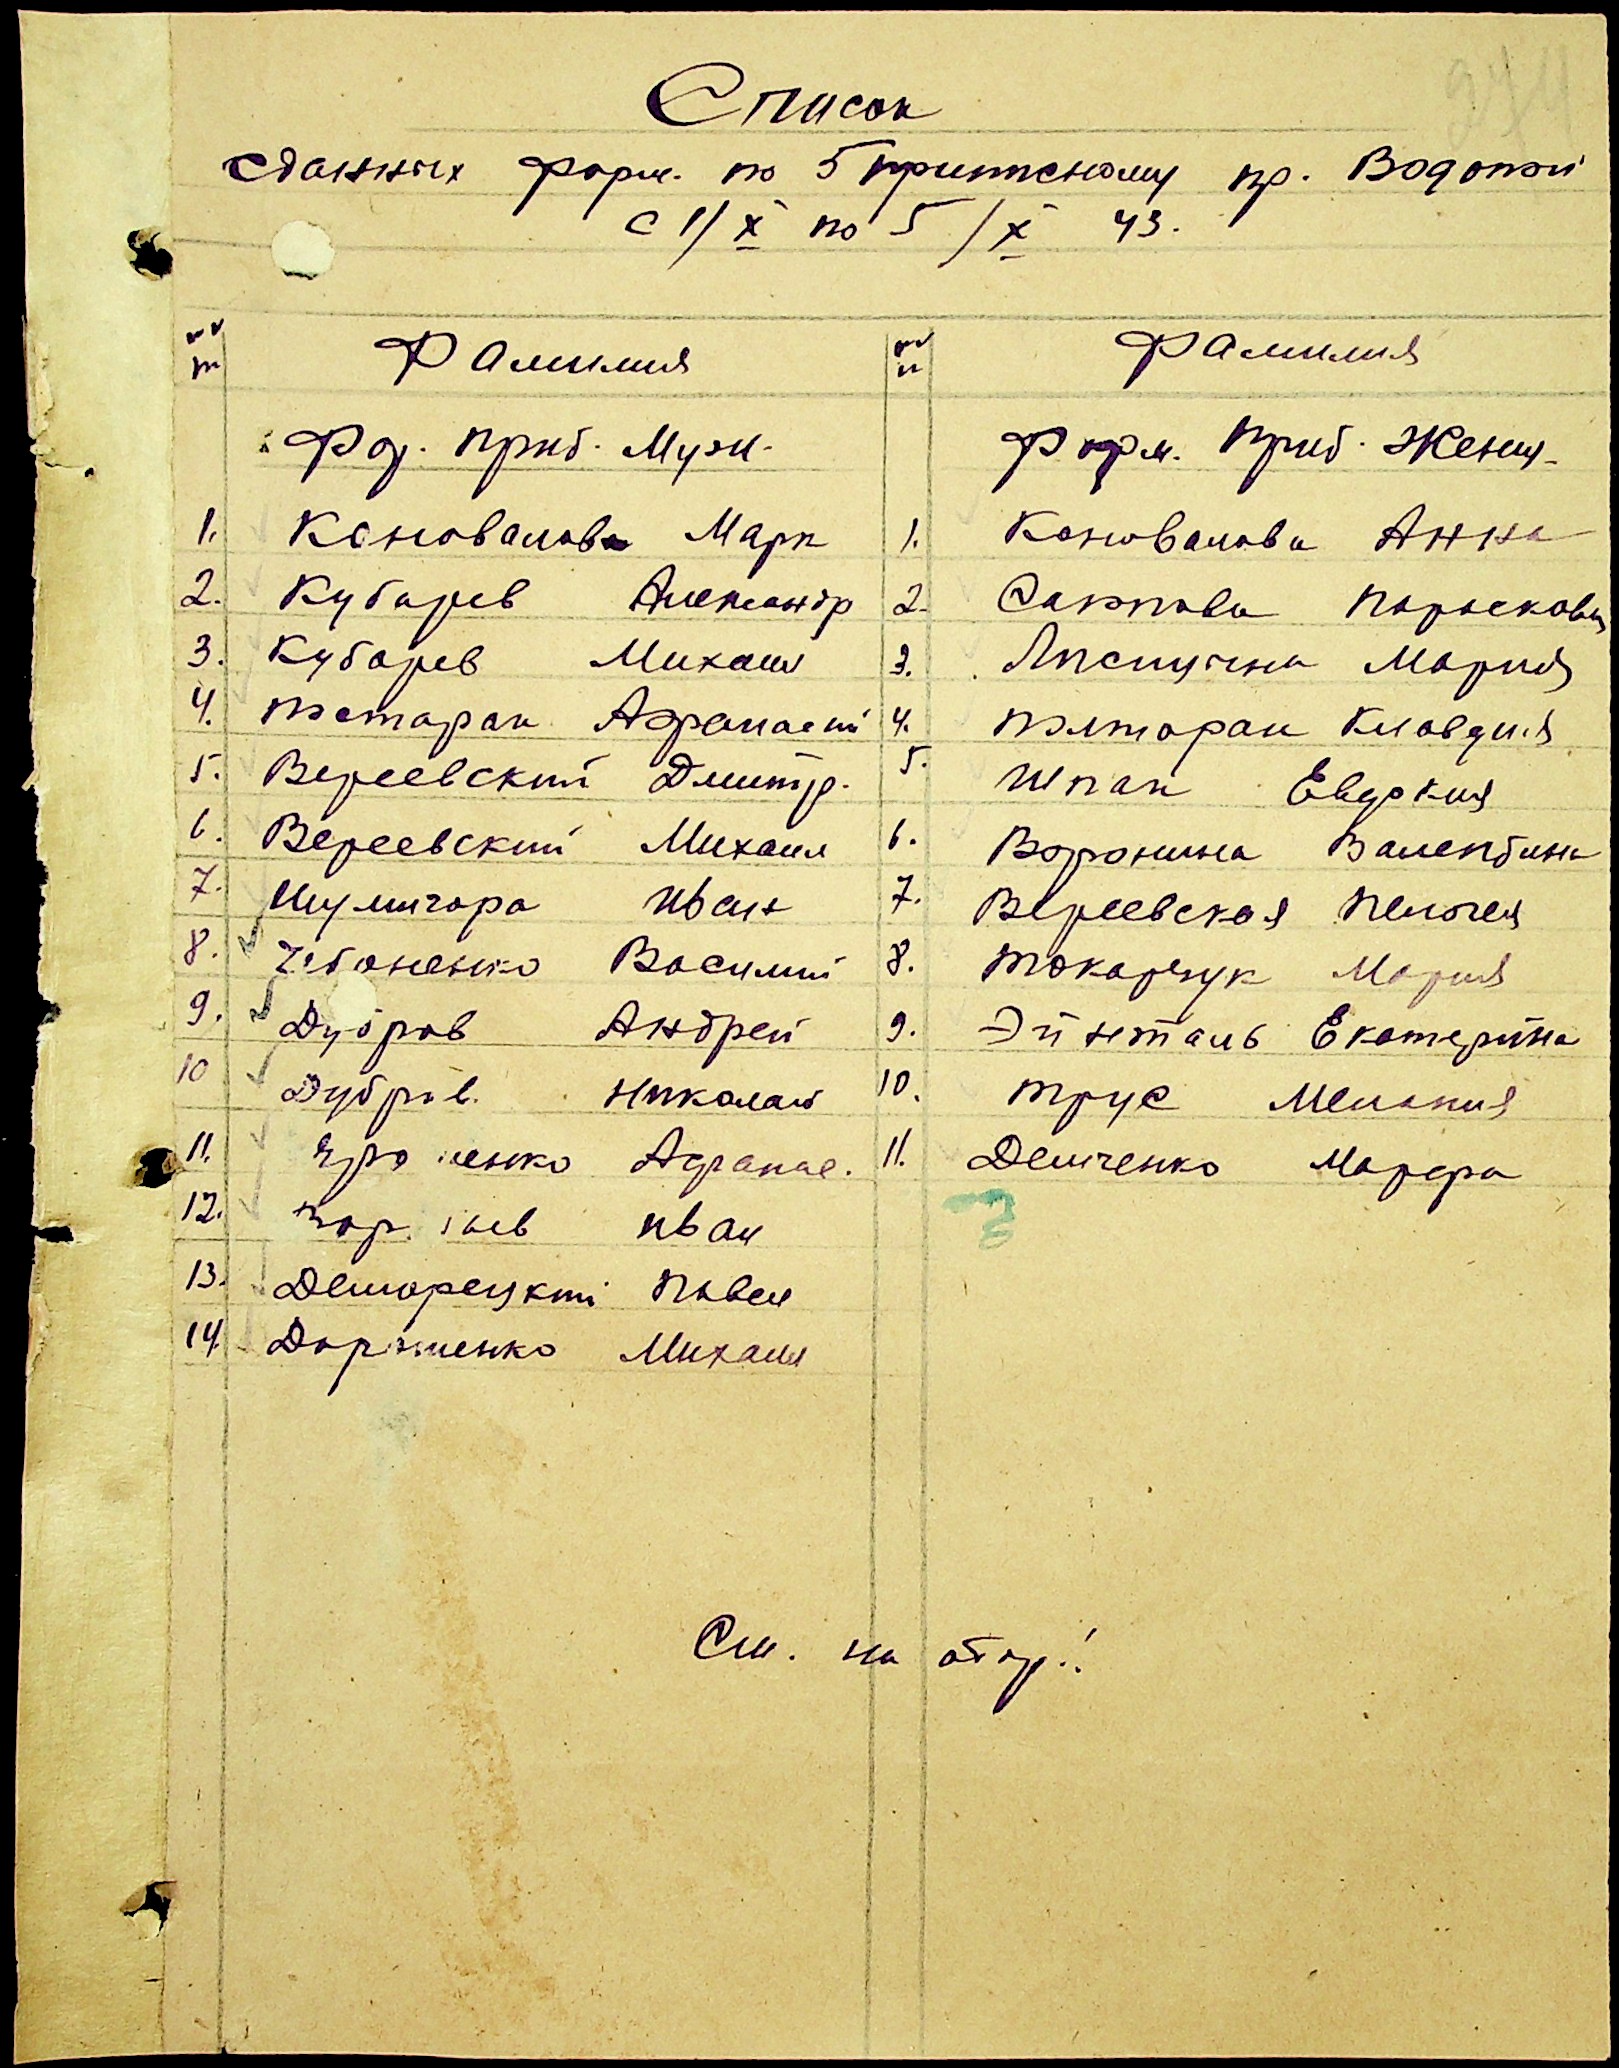 Список
сданных форм. по 5 приписному пр. Водопой
с 1/X по 5/X 43.
№№ Фамилия №№ Фамилия
пп пп
Фор. Приб. Муж. Форм. Приб. Женщ.
1. Коновалов Марк 1. Коновалова Анна
2. Кубарев Александр 2. Парасковья
3. Кубарев Михаил 3. Мария
4. Полторак Афанасий 4. Полторак Клавдия
5. Вереевский Дмитр. 5. Шпак Евдокия
6. Вереевский Михаил 6. Воронина Валентина
7. Шулигора Иван 7. Вереевская Пелогея
8. Чебоненко Василий 8. Токарчук Мария
9. Дубров Андрей 9. Эйнталь Екатерина
10 Дубров. Николай 10. Трус Мелания
11. Афанас. 11. Демченко Марфа
12. Иван
13. Павел
14. Дорошенко Михаил
См. на обор.!